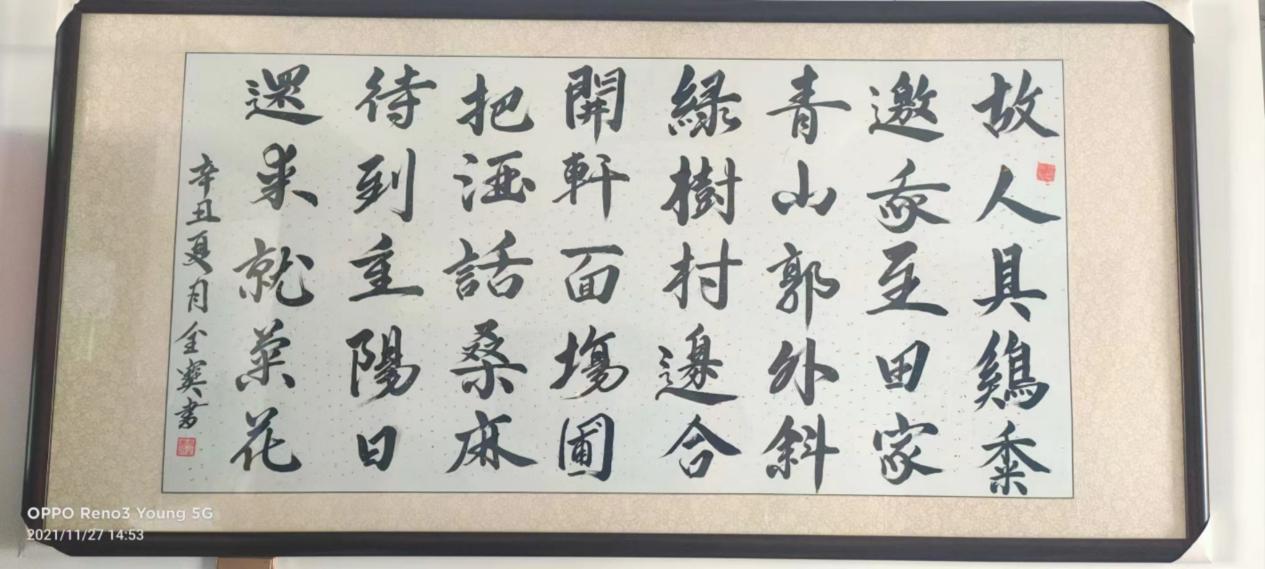 故人具鷄黍
邀我至田家
青山郭外斜
緑樹村邊合
開軒面場圃
把酒話桑麻
待到重陽日
還來就菊花
辛丑夏月金寞书
OPPO Reno3 Young 5G
2021/11/27 14:53